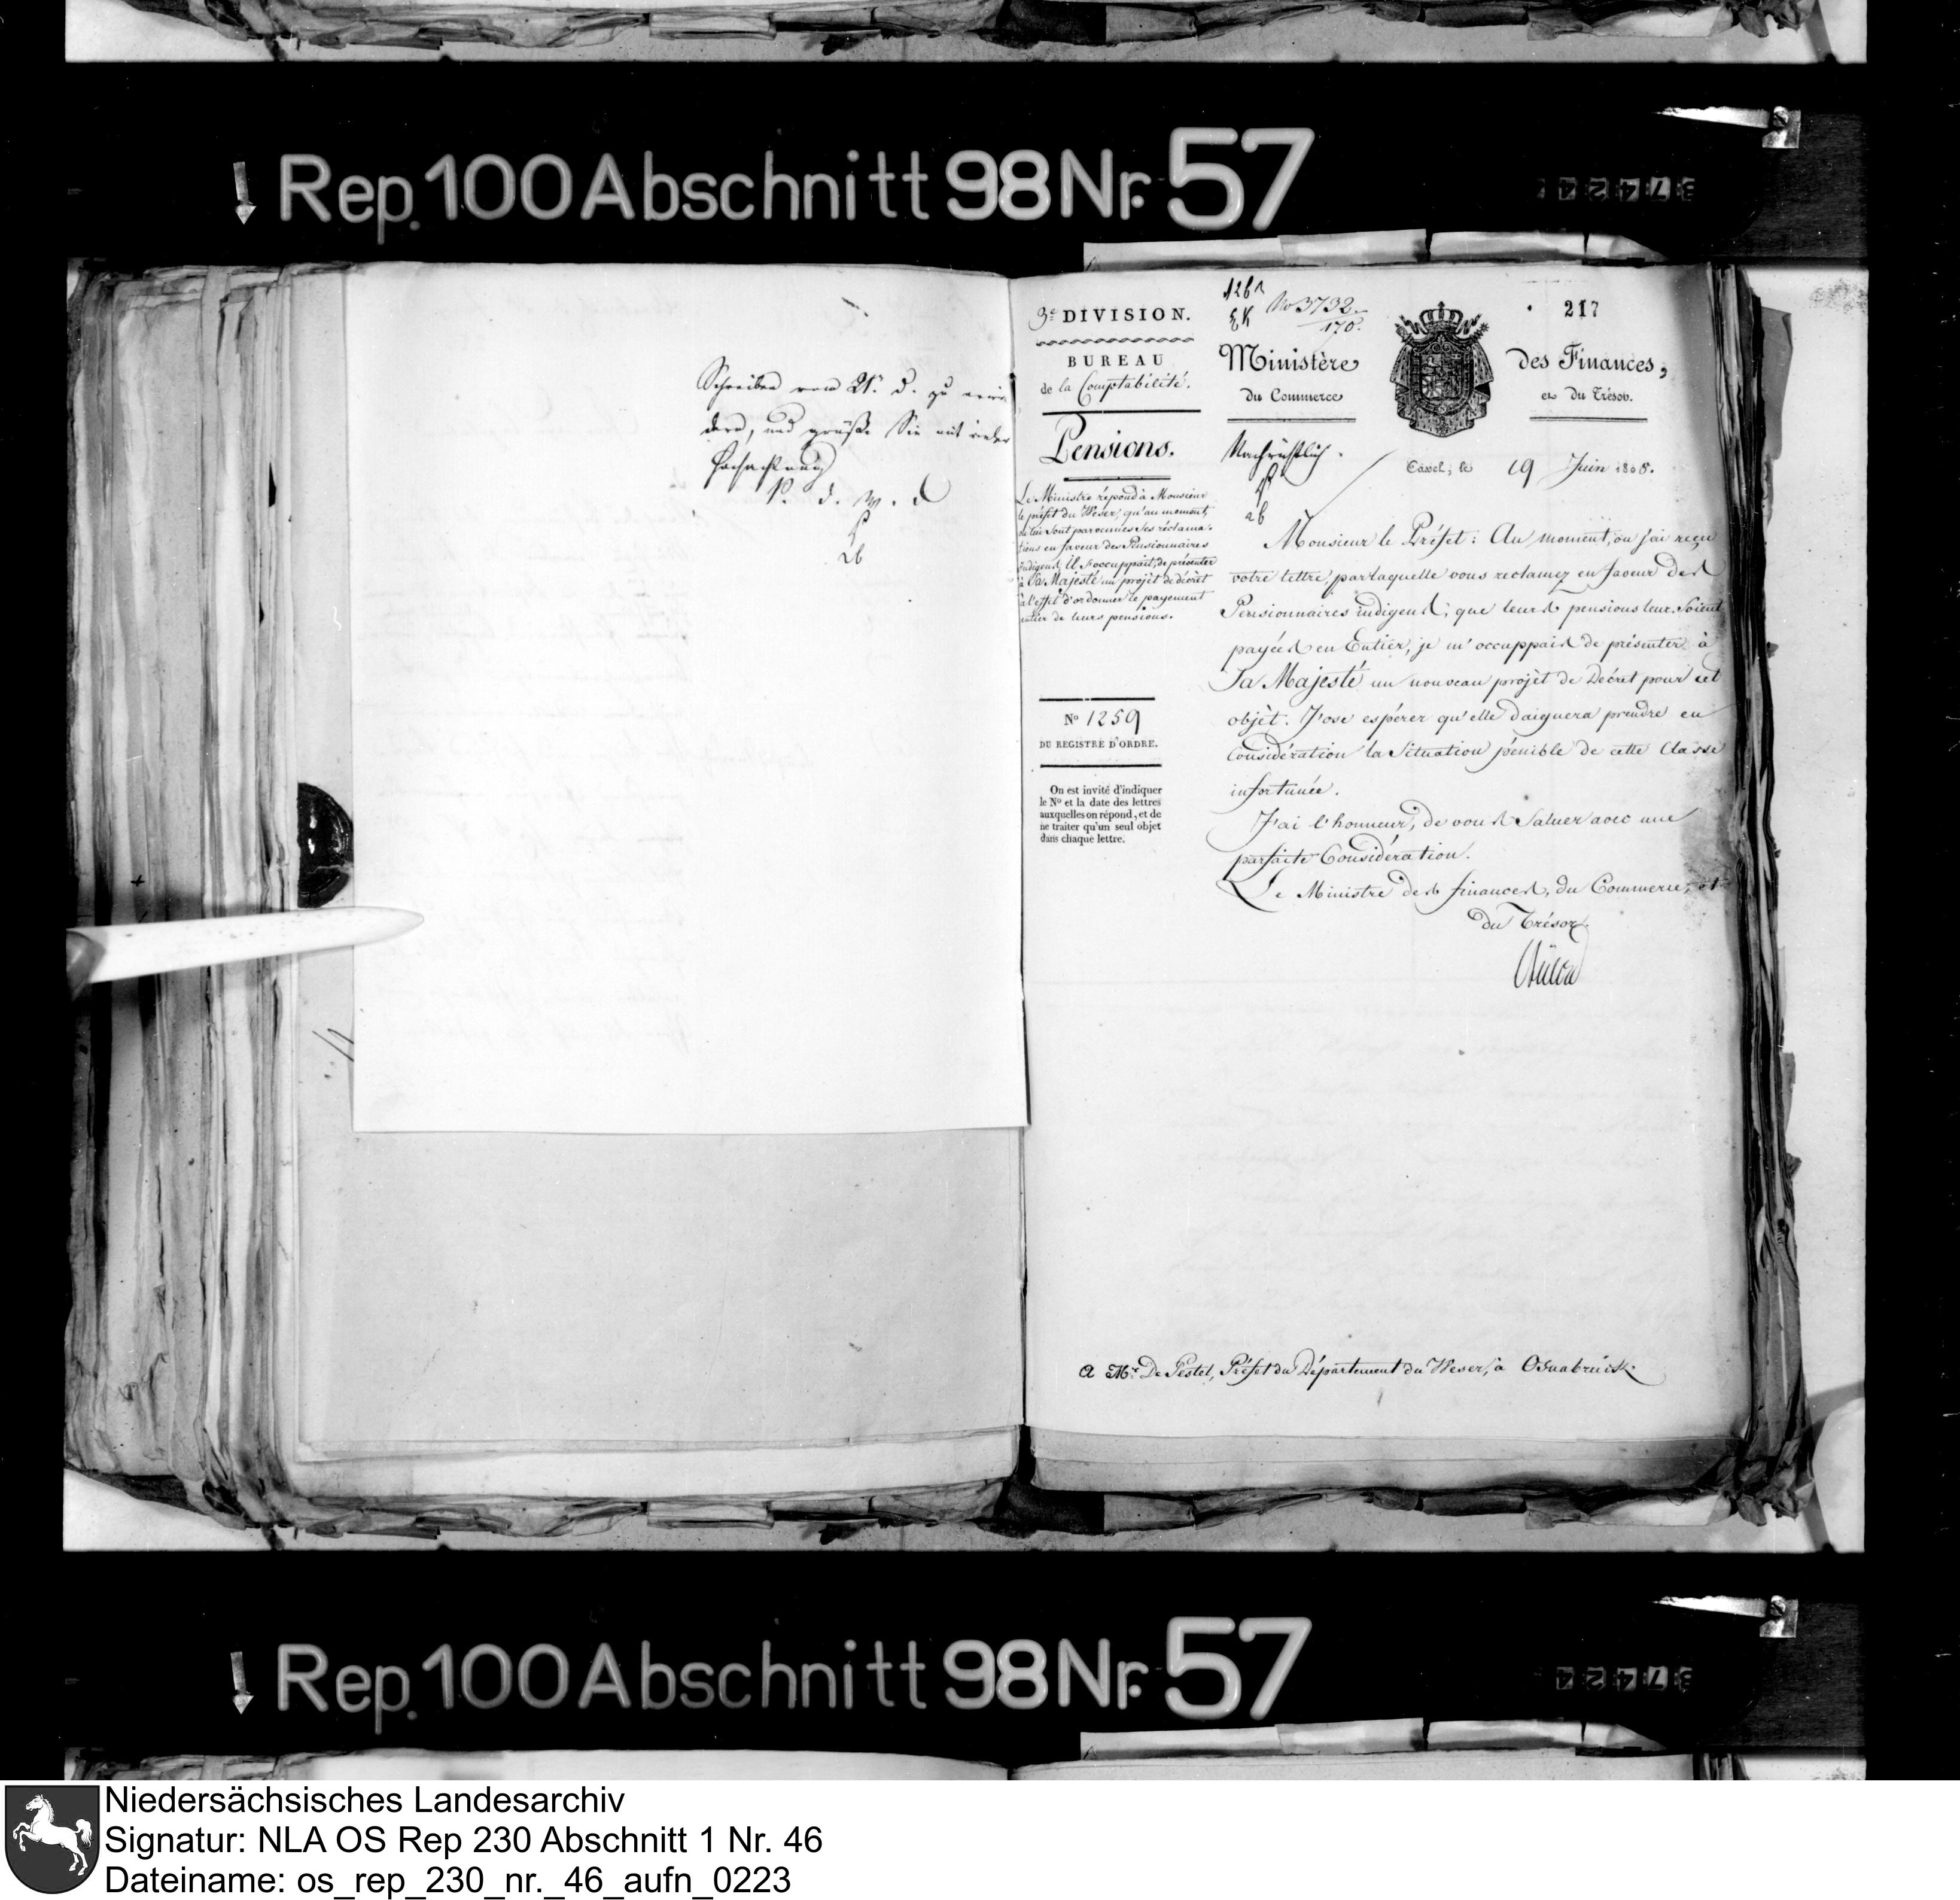 Rep. 100 Abschnitt 98 Nr. 57
Schreiben vom 21. d. zu erwie
dern, und grüße Sie mit vieler
Hochachtung
P. d. W. d
3e DIVISION.
BUREAU
de la Comptabilité.
Pensions.
Le Ministre répond à Monsieur
le préfet du Weser, qu'au moment,
où lui sont parvenues ses réclama-
tions en faveur des Pensionnaires
indigens, il s'occuppait, de présenter
à Sa Majesté un projet de décret
à l'effet d'ordonner le payement
entier de leurs pensions.
No 1259
DU REGISTRE D'ORDRE.
On est invité d'indiquer
le No et la date des lettres
auxquelles on répond, et de
ne traiter qu'un seul objet
dans chaque lettre.
No 3732
170.
217
Ministère des Finances,
du Commerce et du Trésor.
Nachrichtlich.
Cassel, le 19 Juin 1808.
Monsieur le Préfet: Au moment, où j'ai reçu
votre lettre, par laquelle vous reclamez en faveur des
Pensionnaires indigens, que leurs pensions leur soient
payées en Entier, je m'occuppais de présenter à
Sa Majesté un nouveau projèt de Décret pour cet
objèt. J'ose espérer qu'elle daignera prendre en
Considération la Situation pénible de cette Classe
infortunée.
J'ai l'honneur, de vous Saluer avec une
parfaite Considération.
Le Ministre des finances, du Commerce, et
du Trésor.
Bülow
A Mr. De Pestel, Préfet du Département du Weser, à Osnabrück
Rep. 100 Abschnitt 98 Nr. 57
Niedersächsisches Landesarchiv
Signatur: NLA OS Rep 230 Abschnitt 1 Nr. 46
Dateiname: os_rep_230_nr._46_aufn_0223